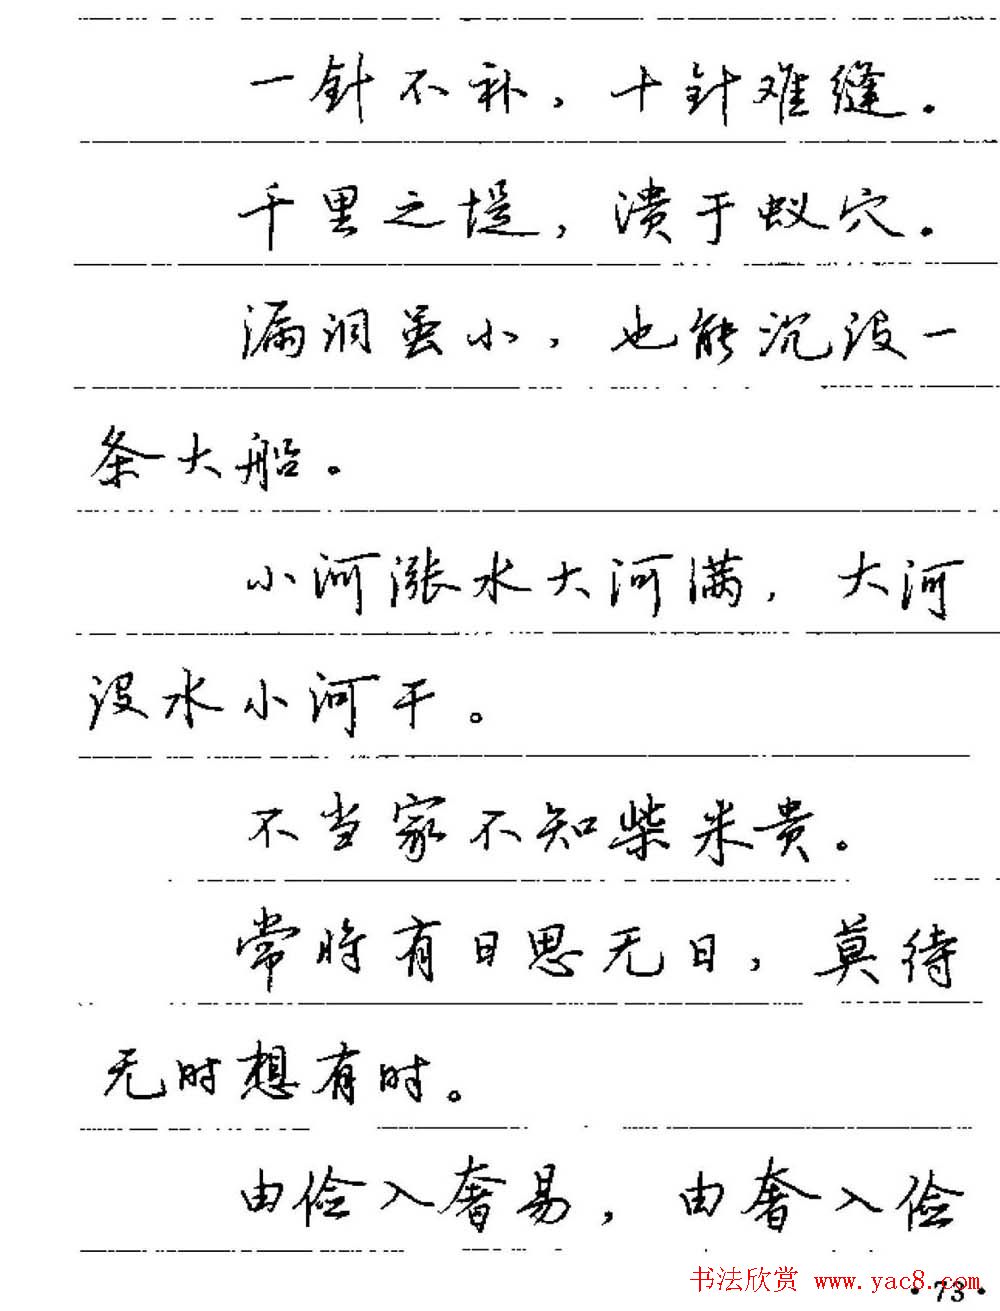 一针不补，十针难缝。
千里之堤，溃于蚁穴。
漏洞虽小，也能沉没一
条大船。
小河涨水大河满，大河
没水小河干。
不当家不知柴米贵。
常将有日思无日，莫待
无时想有时。
由俭入奢易，由奢入俭
书法欣赏 www.yac8.com
·73·